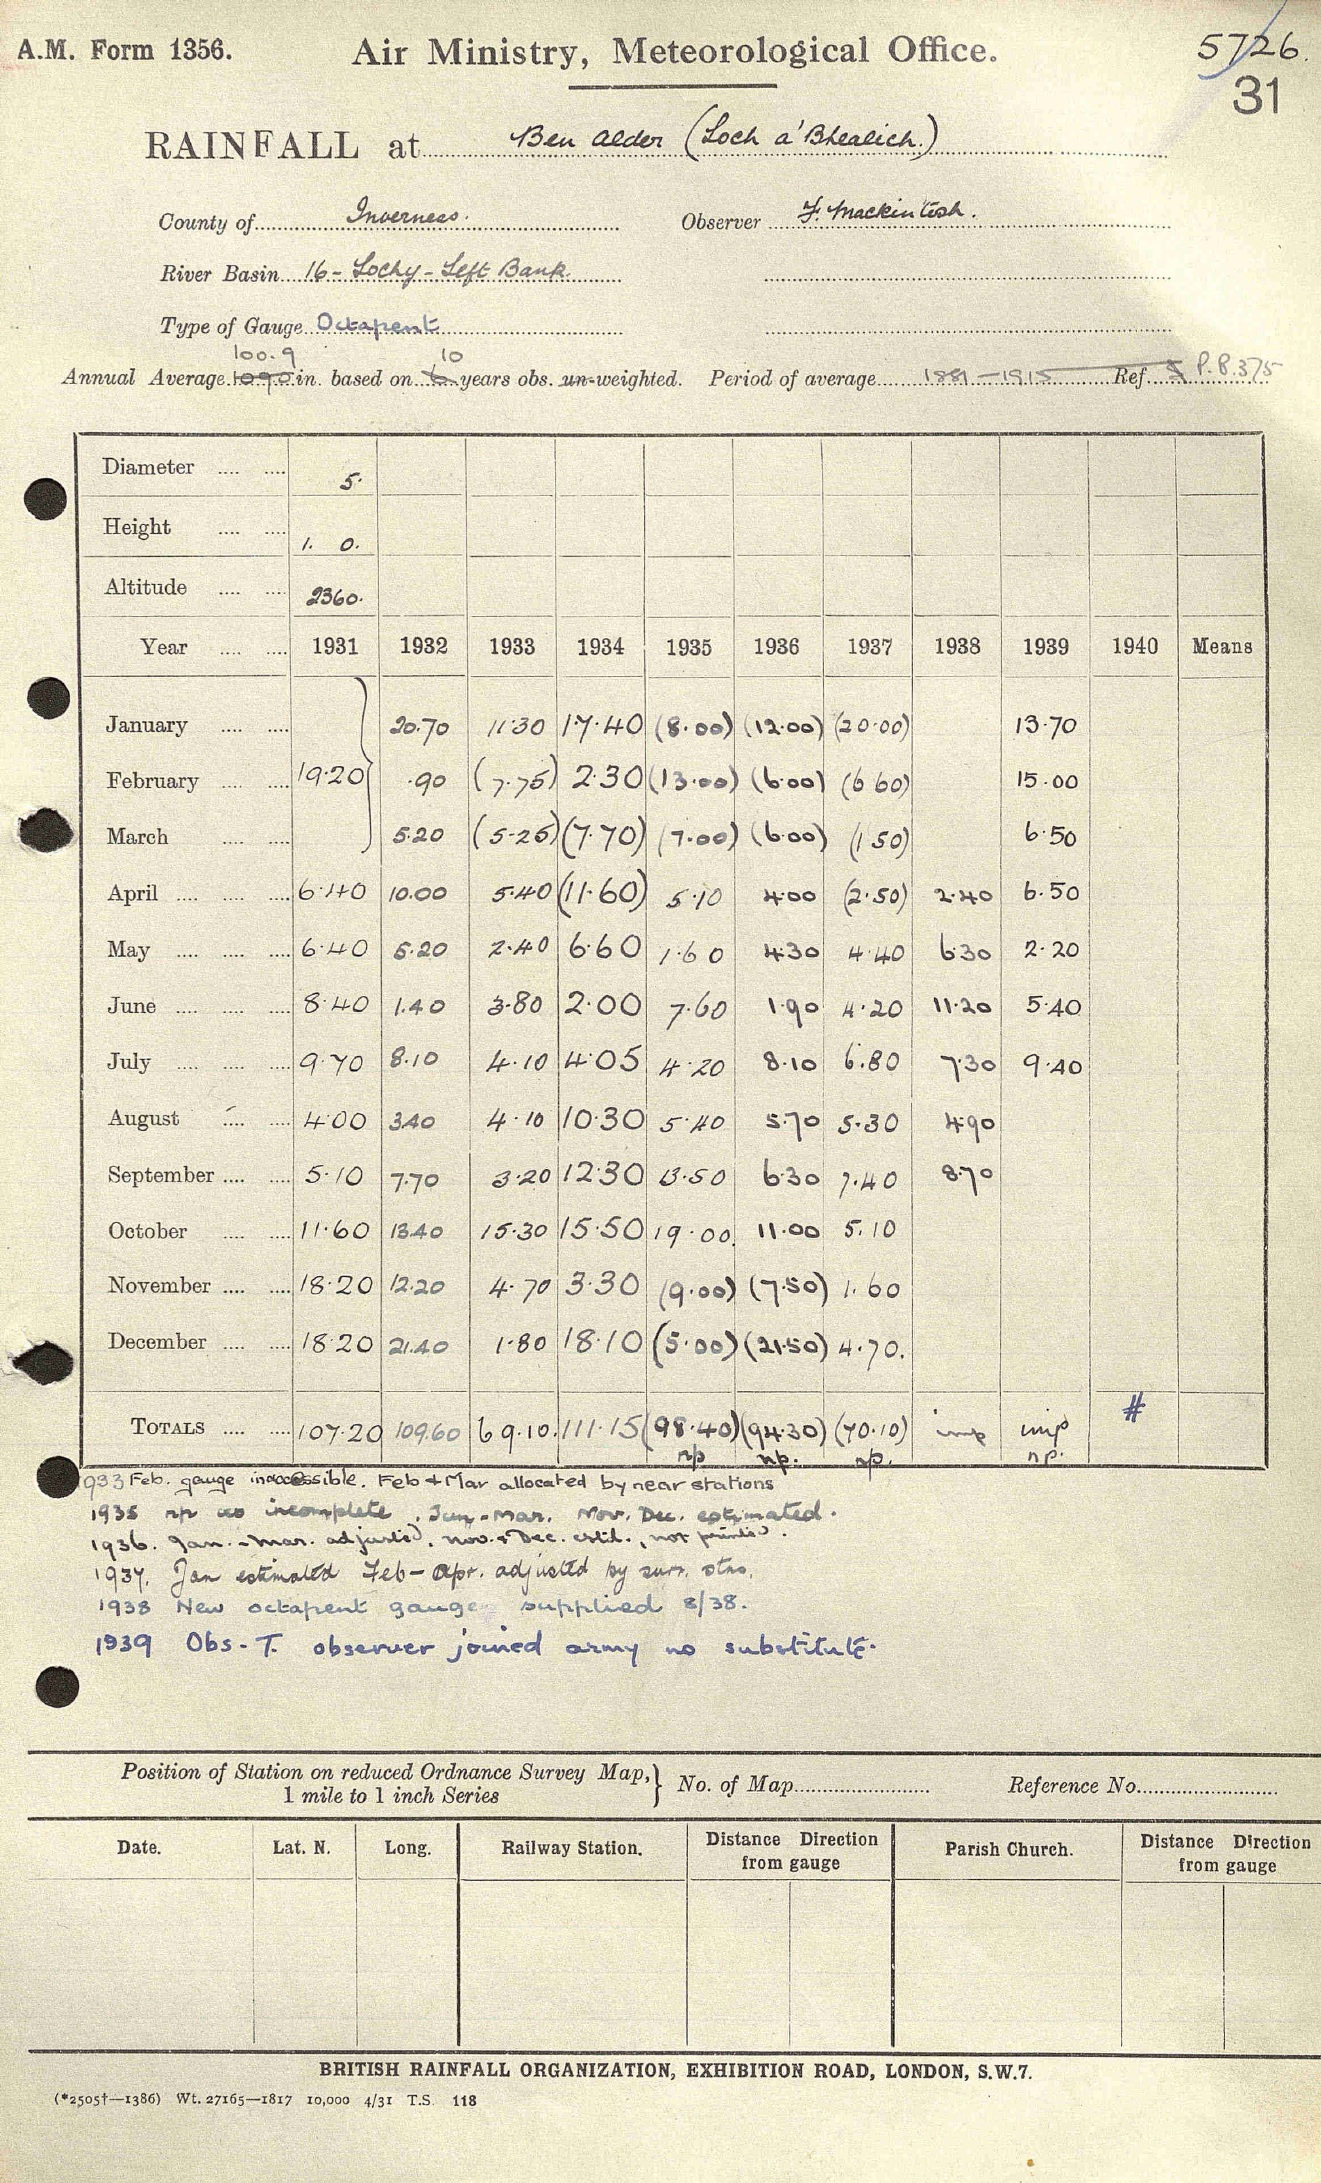 A.M. Form 1356. Air Ministry, Meteorological Office. 5726.
31
RAINFALL at Ben Alder (Loch a'Bhealich.)
County of Inverness. Observer F. Mackintosh.
River Basin 16 - Lochy - Left Bank.
Type of Gauge Octapent
100.9 10
Annual Average 109.0 in. based on 6 years obs. un-weighted. Period of average 1881-1915 Ref. P.P.375
Diameter .... .... 5.
Height .... .... 1. 0.
Altitude .... .... 2360.
Year .... .... 1931 1932 1933 1934 1935 1936 1937 1938 1939 1940 Means
January .... .... 20.70 11.30 17.40 (8.00) (12.00) (20.00) 13.70
February .... .... 19.20 .90 (7.75) 2.30 (13.00) (6.00) (6 60) 15.00
March .... .... 5.20 (5.25) (7.70) (7.00) (6.00) (1 50) 6.50
April .... .... .... 6.40 10.00 5.40 (11.60) 5.10 4.00 (2.50) 2.40 6.50
May .... .... .... 6.40 5.20 2.40 6.60 1.60 4.30 4.40 6.30 2.20
June .... .... .... 8.40 1.40 3.80 2.00 7.60 1.90 4.20 11.20 5.40
July .... .... .... 9.70 8.10 4.10 4.05 4.20 8.10 6.80 7.30 9.40
August .... .... 4.00 3.40 4.10 10.30 5.40 5.70 5.30 4.90
September .... .... 5.10 7.70 3.20 12.30 13.50 6.30 7.40 8.70
October .... .... 11.60 13.40 15.30 15.50 19.00. 11.00 5.10
November .... .... 18.20 12.20 4.70 3.30 (9.00) (7.50) 1.60
December .... .... 18.20 21.40 1.80 18.10 (5.00) (21.50) 4.70.
TOTALS .... .... 107.20 109.60 69.10. 111.15 (98.40) (94.30) (70.10) imp imp #
np np. np. np.
933 Feb. gauge inaccessible. Feb + Mar allocated by near stations
1935 np as incomplete. Jan-Mar. Nov. Dec. estimated.
1936. Jan.-Mar. adjusted, Nov. & Dec. estd., not printed.
1937. Jan estimated Feb-Apr. adjusted by surr. stns.
1938 New octapent gauge supplied 8/38.
1939 Obs-T. observer joined army no substitute.
Position of Station on reduced Ordnance Survey Map, } No. of Map Reference No.
1 mile to 1 inch Series
Date. Lat. N. Long. Railway Station. Distance Direction from gauge Parish Church. Distance Direction from gauge
BRITISH RAINFALL ORGANIZATION, EXHIBITION ROAD, LONDON, S.W.7.
(*2505†—1386) Wt. 27165—1817 10,000 4/31 T.S. 118